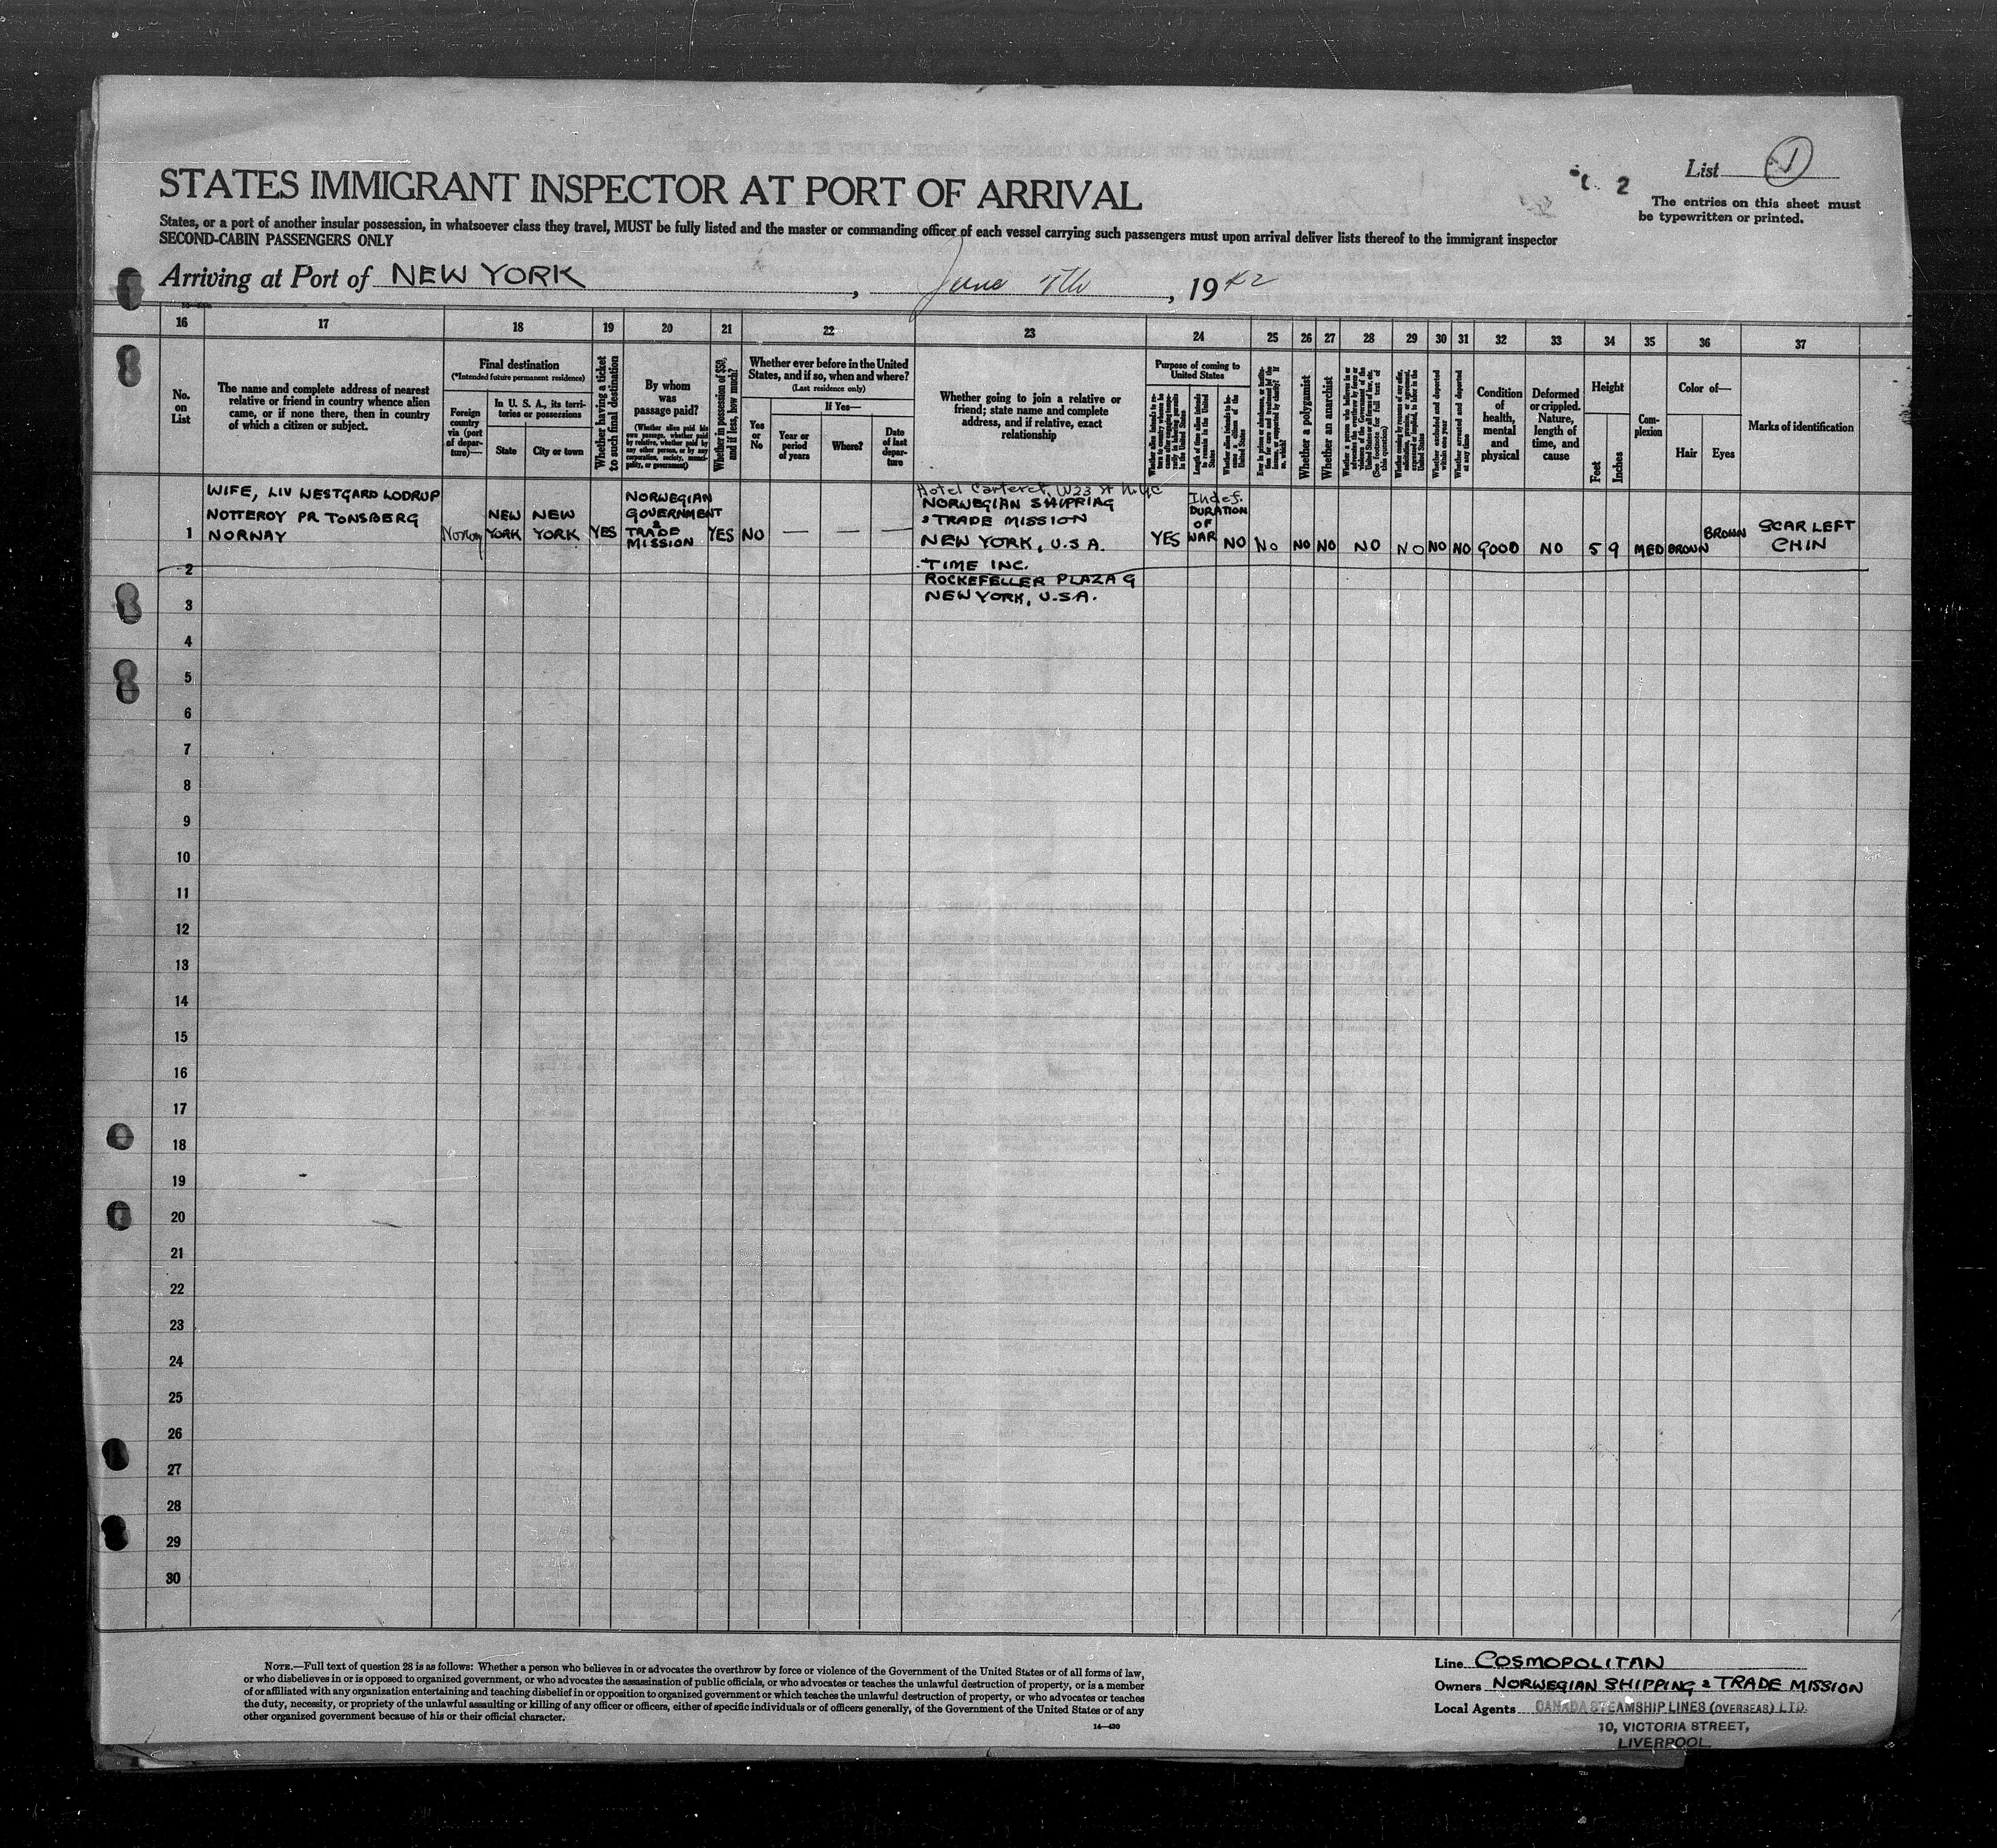 STATES IMMIGRANT INSPECTOR AT PORT OF ARRIVAL
List 1
2
The entries on this sheet must
be typewritten or printed.
States, or a port of another insular possession, in whatsoever class they travel, MUST be fully listed and the master or commanding officer of each vessel carrying such passengers must upon arrival deliver lists thereof to the immigrant inspector
SECOND-CABIN PASSENGERS ONLY
Arriving at Port of NEW YORK, June 19 42
16 17 18 19 20 21 22 23 24 25 26 27 28 29 30 31 32 33 34 35 36 37
No.
on
List
The name and complete address of nearest
relative or friend in country whence alien
came, or if none there, then in country
of which a citizen or subject.
Final destination
(*Intended future permanent residence)
Foreign
country
via (port
of depar-
ture)—
In U. S. A., its terri-
tories or possessions
State
City or town
Whether having a ticket
to such final destination
By whom
was
passage paid?
(Whether alien paid his
own passage, whether paid
by relative, whether paid by
any other person, or by any
corporation, society, munici-
pality, or government)
Whether in possession of $50,
and if less, how much?
Whether ever before in the United
States, and if so, when and where?
(Last residence only)
Yes
or
No
If Yes—
Year or
period
of years
Where?
Date
of last
depar-
ture
Whether going to join a relative or
friend; state name and complete
address, and if relative, exact
relationship
Purpose of coming to
United States
Length of time alien intends
to remain in the United
States
Whether a polygamist
Whether an anarchist
Whether excluded and deported
within one year
Whether arrested and deported
at any time
Condition
of
health,
mental
and
physical
Deformed
or crippled.
Nature,
length of
time, and
cause
Height
Feet
Inches
Com-
plexion
Color of—
Hair
Eyes
Marks of identification
1
WIFE, LIV WESTGARD LODRUP
NOTTEROY PR TONSBERG
NORWAY
Norway
NEW
YORK
NEW
YORK
YES
NORWEGIAN
GOVERNMENT
&
TRADE
MISSION
YES
NO
—
—
—
Hotel Carteret, W23 St N.Y.C
NORWEGIAN SHIPPING
& TRADE MISSION
NEW YORK, U.S.A.
TIME INC.
ROCKEFELLER PLAZA 9
NEW YORK, U.S.A.
YES
Indef.
DURATION
OF
WAR
NO
No
NO
NO
NO
NO
NO
NO
GOOD
NO
5
9
MED
BROWN
BROWN
SCAR LEFT
CHIN
2
3
4
5
6
7
8
9
10
11
12
13
14
15
16
17
18
19
20
21
22
23
24
25
26
27
28
29
30
NOTE.—Full text of question 28 is as follows: Whether a person who believes in or advocates the overthrow by force or violence of the Government of the United States or of all forms of law,
or who disbelieves in or is opposed to organized government, or who advocates the assassination of public officials, or who advocates or teaches the unlawful destruction of property, or is a member
of or affiliated with any organization entertaining and teaching disbelief in or opposition to organized government or which teaches the unlawful destruction of property, or who advocates or teaches
the duty, necessity, or propriety of the unlawful assaulting or killing of any officer or officers, either of specific individuals or of officers generally, of the Government of the United States or of any
other organized government because of his or their official character.
14—430
Line COSMOPOLITAN
Owners NORWEGIAN SHIPPING & TRADE MISSION
Local Agents CANADA STEAMSHIP LINES (OVERSEAS) LTD.
10, VICTORIA STREET,
LIVERPOOL.